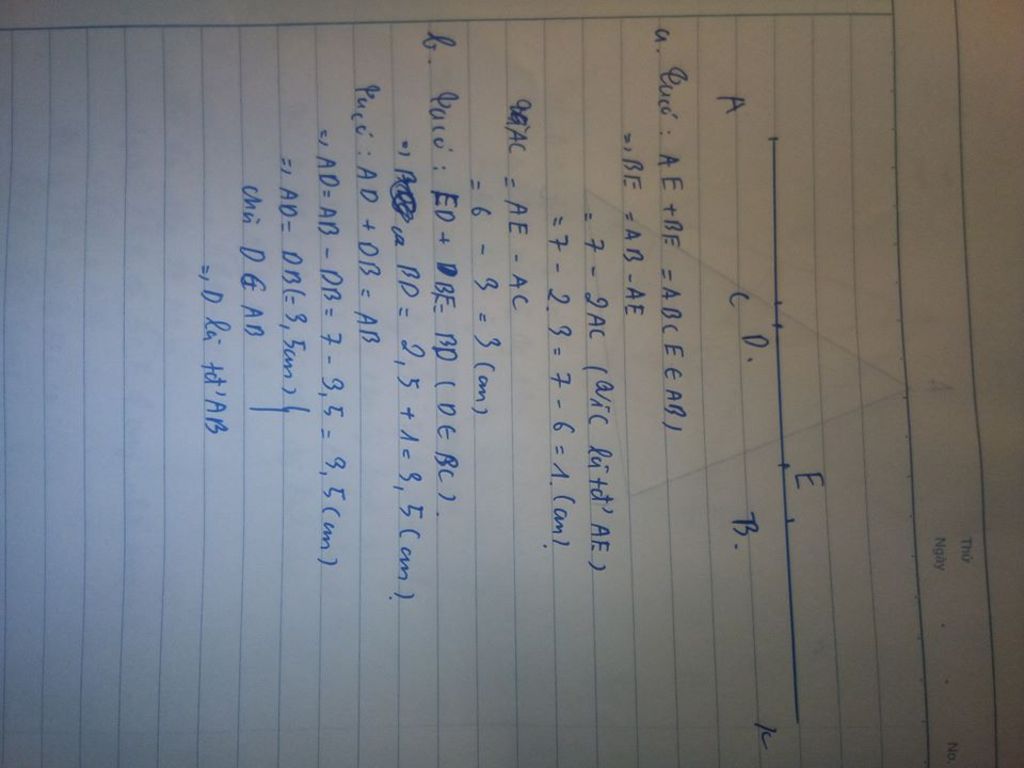 Thứ
Ngày
No.
A C D. E B. x
a. Ta có: AE + BE = AB (E ∈ AB)
=> BE = AB - AE
= 7 - 2AC (Vì C là tđ' AE)
= 7 - 2.3 = 7 - 6 = 1 (cm)
AC = AE - AC
= 6 - 3 = 3 (cm)
b. Ta có: ED + BE = BD (D ∈ BC).
=> BD = 2,5 + 1 = 3,5 (cm)
Ta có: AD + DB = AB
=> AD = AB - DB = 7 - 3,5 = 3,5 (cm)
=> AD = DB (= 3,5cm)
D ∈ AB
=> D là tđ' AB